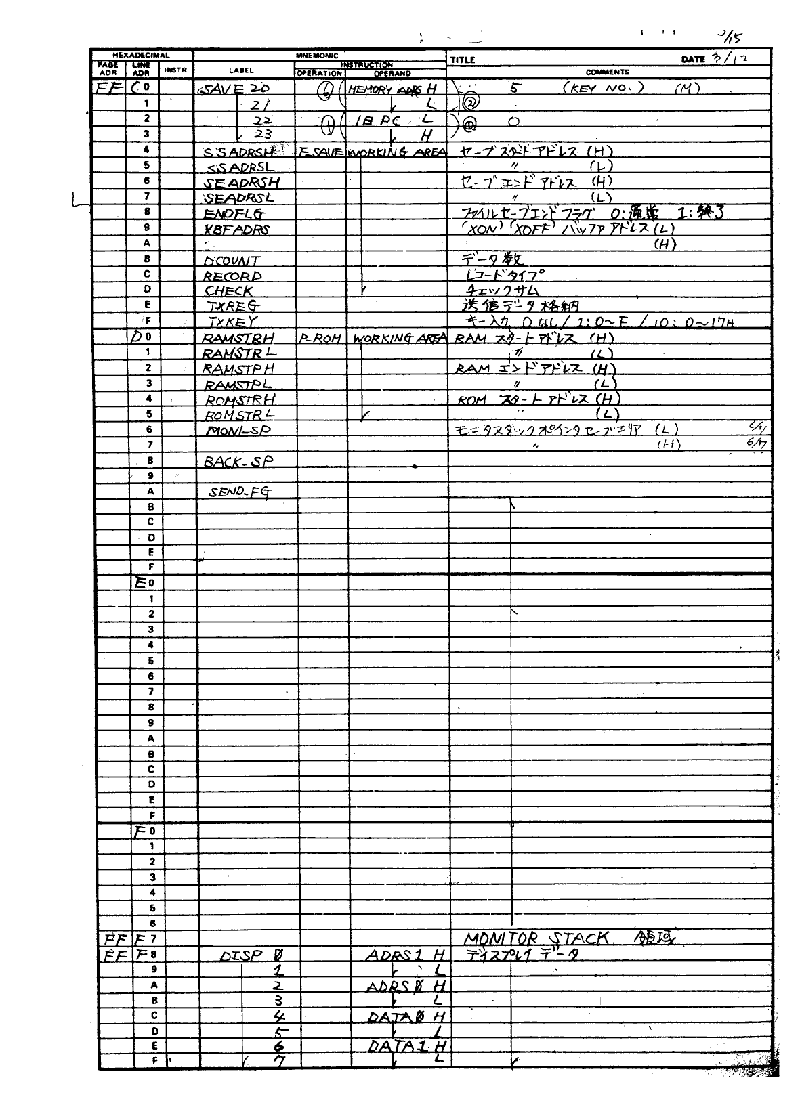 3/15
HEXADECIMAL MNEMONIC TITLE DATE 3/12
PAGE ADR LINE ADR INSTR LABEL INSTRUCTION OPERATION OPERAND COMMENTS
FF C0 SAVE 20 MEMORY ADRS H 5 (KEY NO.) (M)
1 21 L ②
2 22 ① IB PC L 0
3 23 H
4 SSADRSH F.SAVE WORKING AREA セーブスタートアドレス (H)
5 SSADRSL 〃 (L)
6 SEADRSH セーブエンドアドレス (H)
7 SEADRSL 〃 (L)
8 ENDFLG ファイルセーブエンドフラグ 0:通常 1:終了
9 XBFADRS (XON) (XOFF) バッファアドレス (L)
A (H)
B DCOUNT データ数
C RECORD レコードタイプ
D CHECK チェックサム
E TXREG 送信データ格納
F TXKEY キー入力 0:なし / 1:0~F / 10:0~17H
D0 RAMSTRH P-ROM WORKING AREA RAM スタートアドレス (H)
1 RAMSTRL 〃 (L)
2 RAMSTPH RAM エンドアドレス (H)
3 RAMSTPL 〃 (L)
4 ROMSTRH ROM スタートアドレス (H)
5 ROMSTRL 〃 (L)
6 MONI-SP モニタスタックポインタセーブエリア (L)
7 〃 (H) 6/17
8 BACK-SP
9
A SEND-FG
B
C
D
E
F
E0
1
2
3
4
5
6
7
8
9
A
B
C
D
E
F
F0
1
2
3
4
5
6
FF F7 MONITOR STACK 領域
FF F8 DISP 0 ADRS1 H ディスプレイデータ
9 1 L
A 2 ADRS0 H
B 3 L
C 4 DATA0 H
D 5 L
E 6 DATA1 H
F 7 L